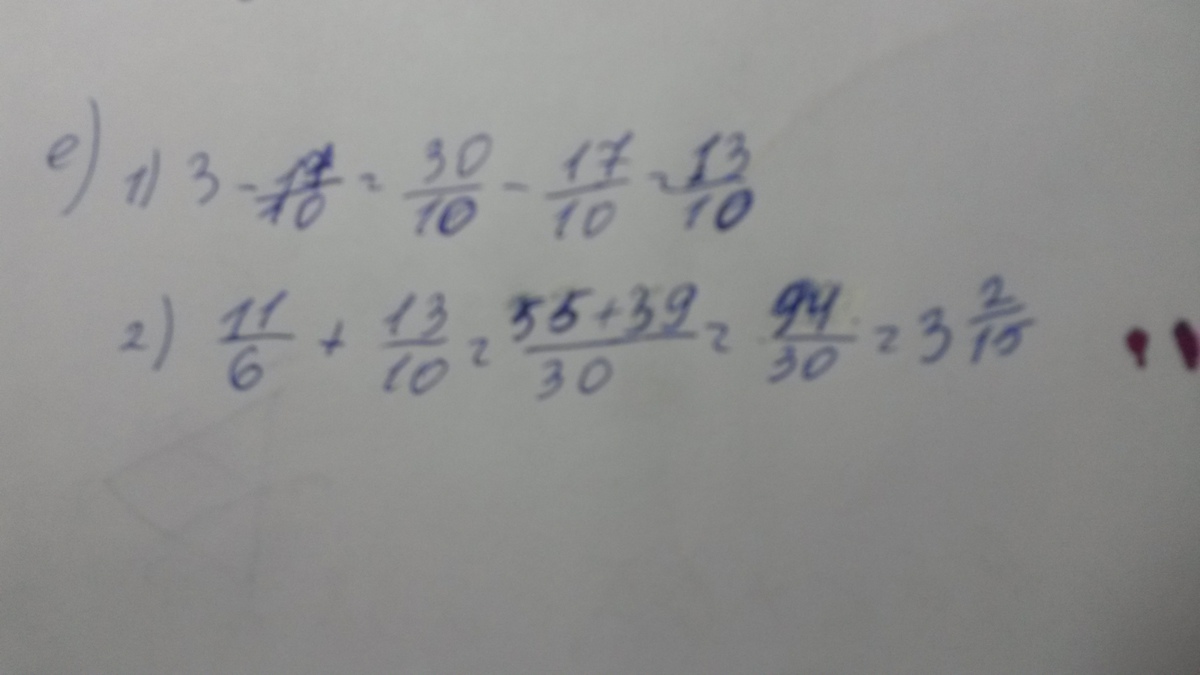 e) 1) 3 - 17/10 = 30/10 - 17/10 = 13/10
2) 11/6 + 13/10 = 55+39/30 = 94/30 = 3 2/15